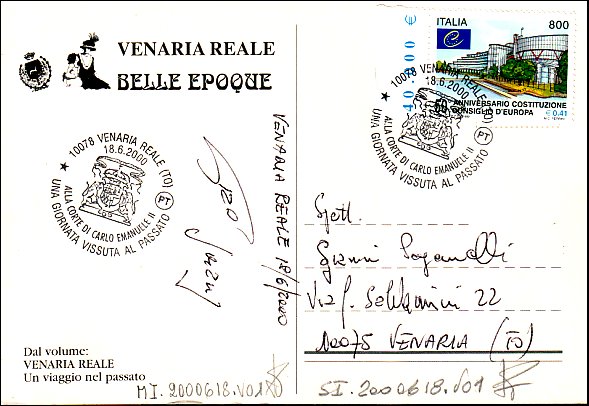 VENARIA REALE
BELLE EPOQUE
40.000 €
ITALIA 800
50° ANNIVERSARIO COSTITUZIONE
CONSIGLIO D'EUROPA
€ 0,41
★ 10078 VENARIA REALE (TO) PT
18.6.2000
ALLA CORTE DI CARLO EMANUELE II
UNA GIORNATA VISSUTA AL PASSATO
★ 10078 VENARIA REALE (TO) PT
18.6.2000
ALLA CORTE DI CARLO EMANUELE II
UNA GIORNATA VISSUTA AL PASSATO
VENARIA REALE 18/6/2000
Gianni
Via 22
10075 VENARIA (TO)
Dal volume:
VENARIA REALE
Un viaggio nel passato
MI.2000618.V01
SI.2000618.V01